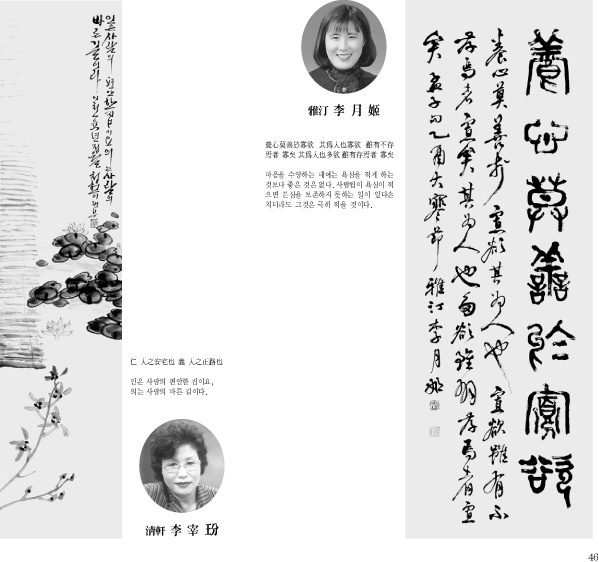 인은 사람의 편안한 집이요 의는 사람의
바른 길이라
雅汀 李月姬
養心莫善於寡欲 其爲人也寡欲 雖有不存
焉者 寡矣 其爲人也多欲 雖有存焉者 寡矣
마음을 수양하는 데에는 욕심을 적게 하는
것보다 좋은 것은 없다. 사람됨이 욕심이 적
으면 본심을 보존하지 못하는 일이 있다손
치더라도 그것은 극히 적을 것이다.
養心莫善於寡欲
養心莫善於寡欲其爲人也寡欲雖有不
存焉者寡矣其爲人也多欲雖有存焉者寡
矣孟子句乙酉大寒節雅汀李月姬
仁 人之安宅也 義 人之正路也
인은 사람의 편안한 집이요,
의는 사람의 바른 길이다.
淸軒 李宰玢
46